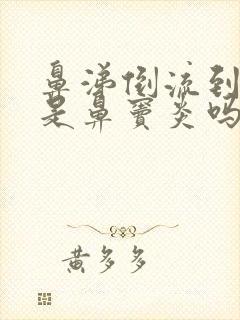 鼻涕倒流到
是鼻窦炎吗
黄多多